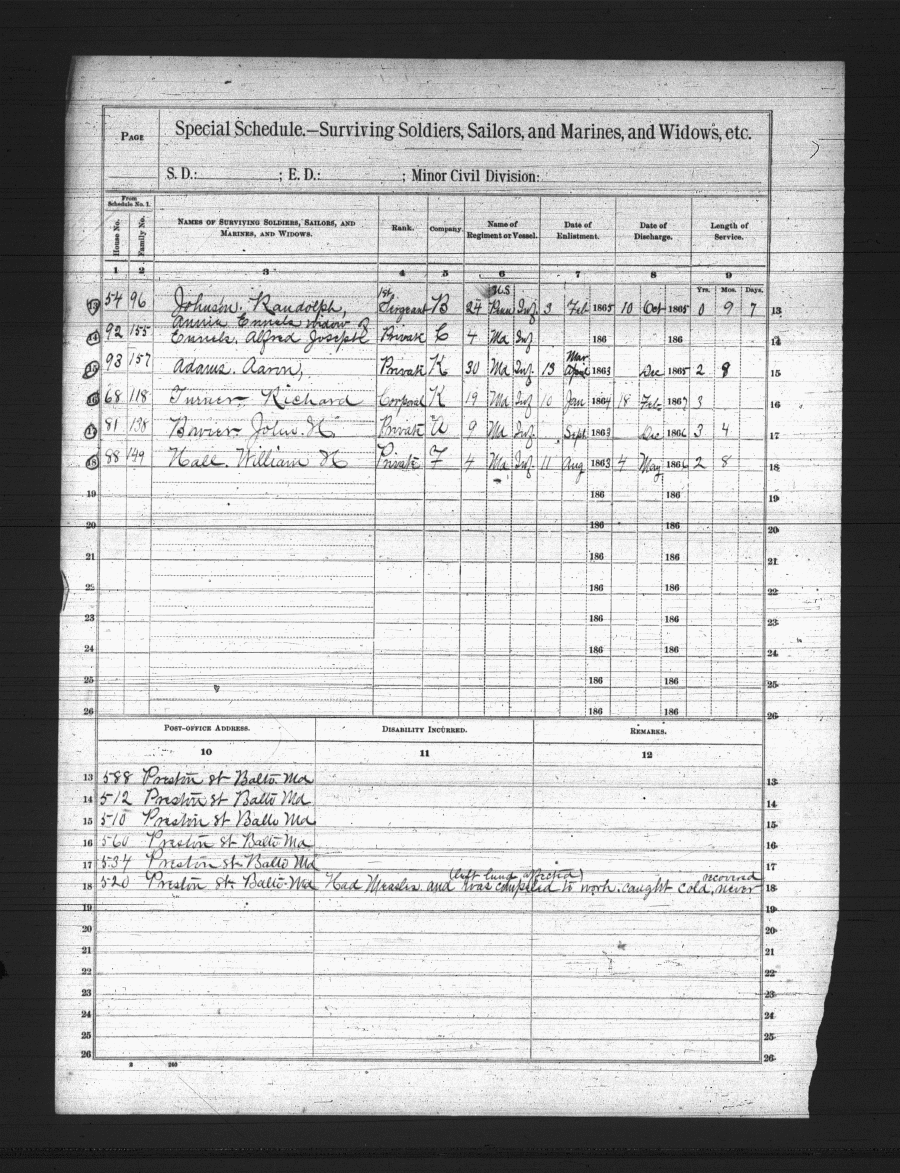 PAGE
Special Schedule.—Surviving Soldiers, Sailors, and Marines, and Widows, etc.
S. D.: ; E. D.: ; Minor Civil Division:
From Schedule No. 1.
House No. Family No. NAMES OF SURVIVING SOLDIERS, SAILORS, AND MARINES, AND WIDOWS. Rank. Company. Name of Regiment or Vessel. Date of Enlistment. Date of Discharge. Length of Service.
1 2 3 4 5 6 7 8 9
Yrs. Mos. Days.
13 54 96 Johnson. Randolph, 1st Sergeant B 24 Inf 3 Feb 1865 10 Oct 1865 0 9 7 13
Ennels widow of
14 92 155 Ennels. Alfred Joseph Private C 4 Md Inf 186 186 14
15 93 157 Adams. Aaron, Private K 30 Md Inf 13 Mar April 1863 Dec 1865 2 8 15
16 68 118 Turner Richard Corporal K 19 Md Inf 10 Jan 1864 18 Feb 1867 3 16
17 81 138 John. H Private 9 Md Inf Sept 1863 Dec 1866 3 4 17
18 88 149 Hall. William H Private F 4 Md Inf 11 Aug 1863 4 May 1866 2 8 18
19 186 186 19
20 186 186 20
21 186 186 21
22 186 186 22
23 186 186 23
24 186 186 24
25 186 186 25
26 186 186 26
POST-OFFICE ADDRESS. DISABILITY INCURRED. REMARKS.
10 11 12
13 588 Preston St Balto Md 13
14 512 Preston St Balto Md 14
15 510 Preston St Balto Md 15
16 560 Preston St Balto Md 16
17 534 Preston St Balto Md 17
(left lung affected) recovered
18 520 Preston St Balto Md Had Measles and was to work. caught cold, never 18
19 19
20 20
21 21
22 22
23 23
24 24
25 25
26 26